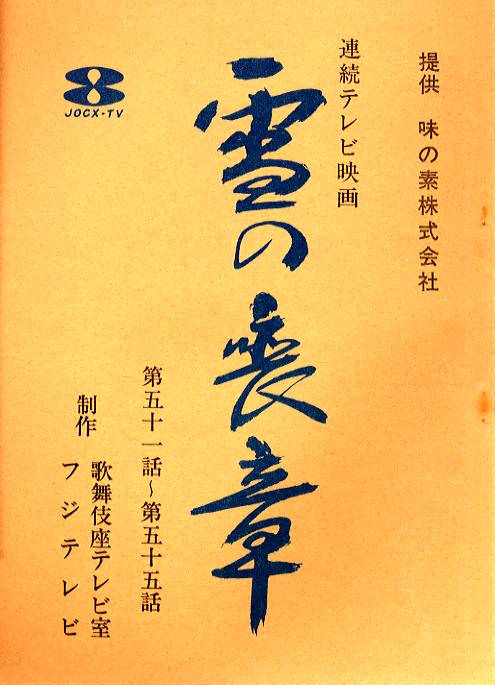 提供 味の素株式会社
連続テレビ映画
雪の喪章
第五十一話～第五十五話
制作 歌舞伎座テレビ室
フジテレビ
JOCX-TV